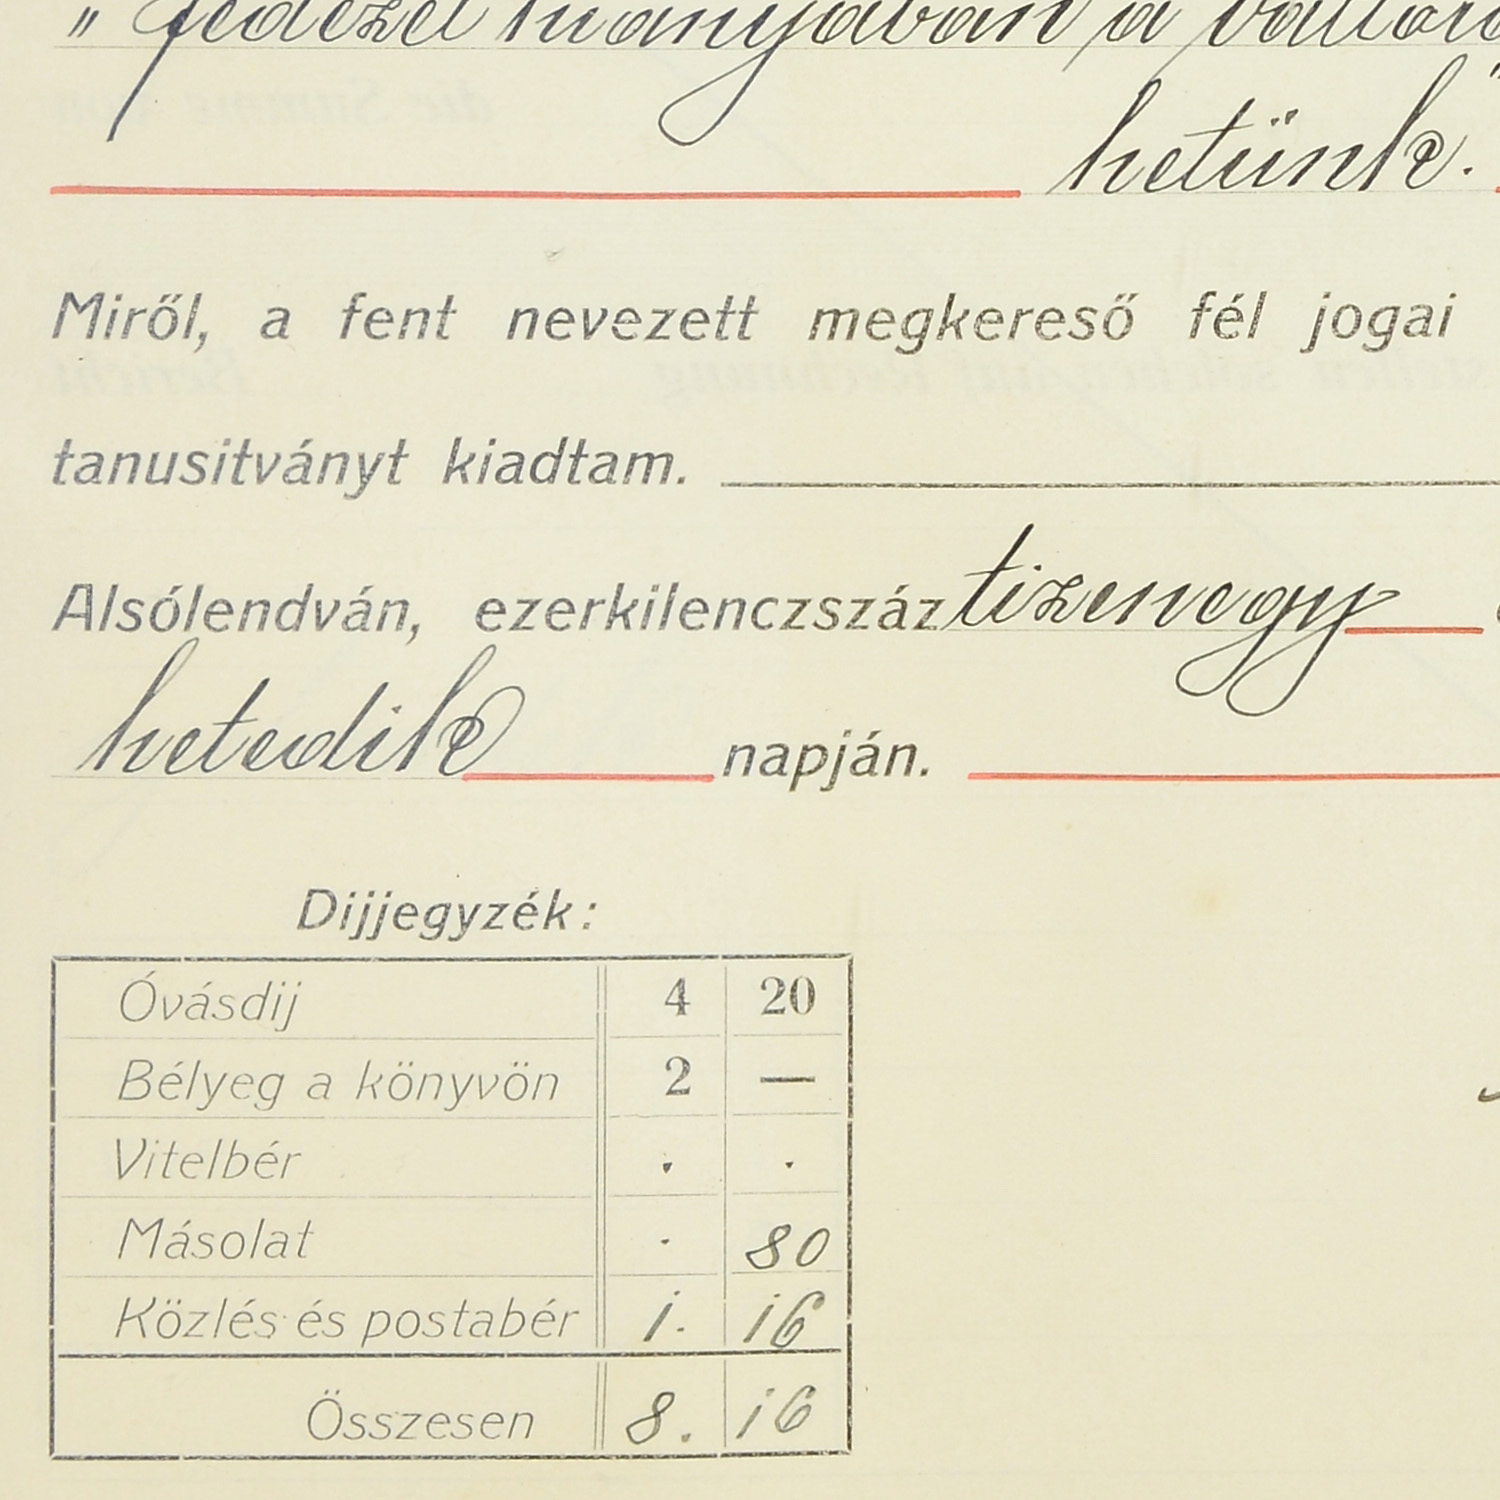 „ fedezet hiányában a váltóra
hetünk."
Miről, a fent nevezett megkereső fél jogai
tanusitványt kiadtam.
Alsólendván, ezerkilenczszáz tizenegy
hetedik napján.
Dijjegyzék:
Óvásdij 4 20
Bélyeg a könyvön 2 —
Vitelbér . .
Másolat . 80
Közlés és postabér 1. 16
Összesen 8. 16